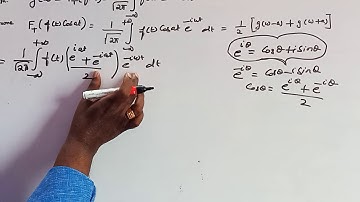 F_T(f(t)cosat) = \frac{1}{\sqrt{2π}} \int_{-∞}^{+∞} f(t) cosat e^{-iωt} dt = \frac{1}{2}[g(ω-a) + g(ω+a)]
= \frac{1}{\sqrt{2π}} \int_{-∞}^{+∞} f(t) \left(\frac{e^{iat} + e^{-iat}}{2}\right) e^{-iωt} dt
e^{iθ} = cosθ + isinθ
e^{-iθ} = cosθ - isinθ
cosθ = \frac{e^{iθ} + e^{-iθ}}{2}